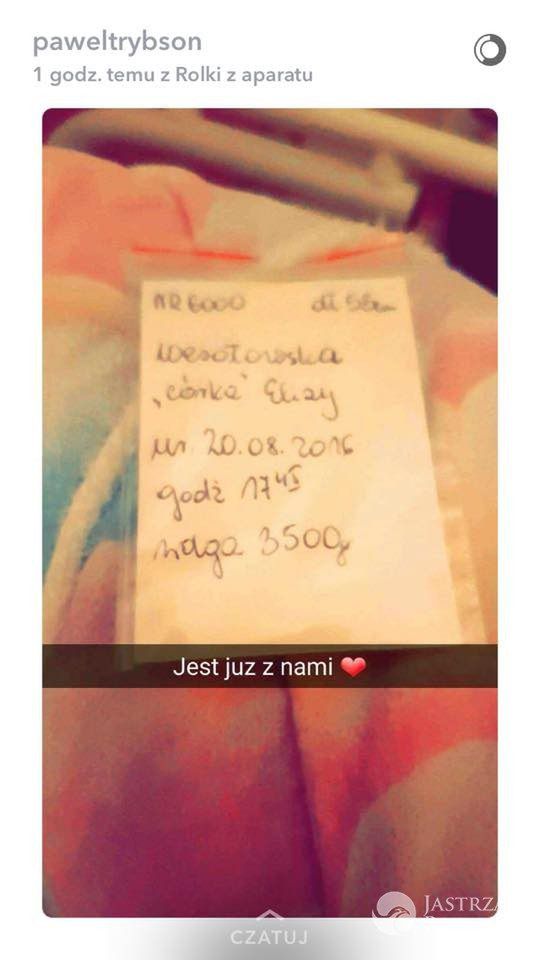 paweltrybson
1 godz. temu z Rolki z aparatu
NR 6000 dł 58cm
Wesołowska
„córka" Elizy
ur. 20.08.2016
godz 17⁴⁵
waga 3500g
Jest juz z nami ❤
CZATUJ
JASTRZĄ